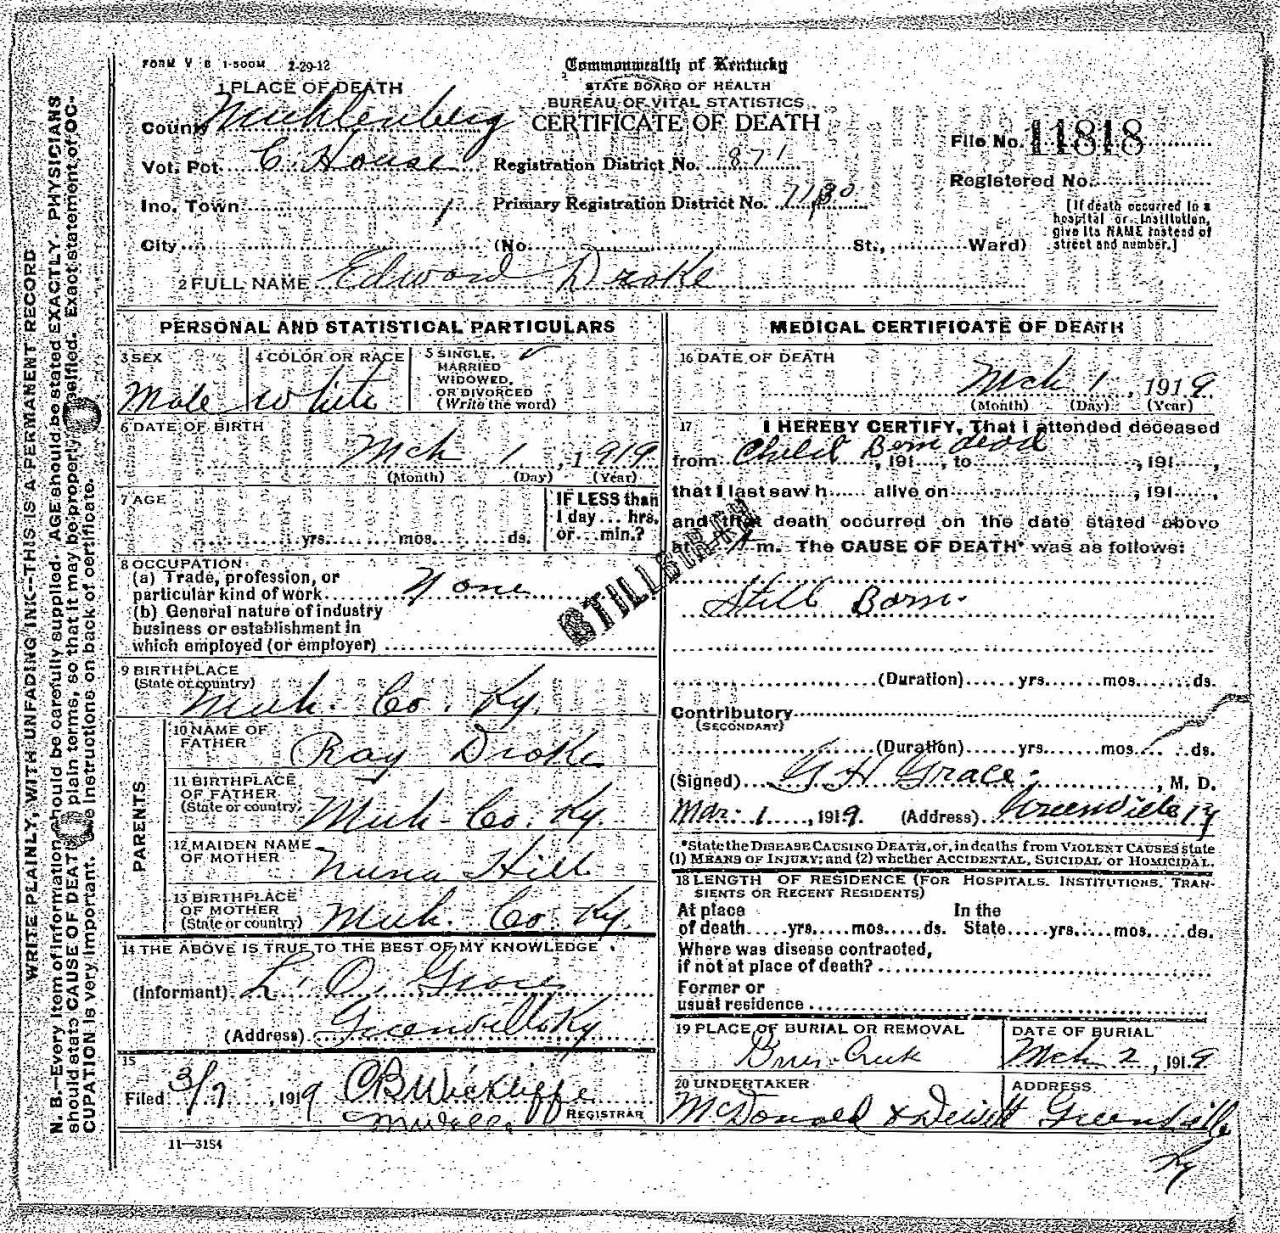 FORM V B 1-500M 2-29-12
Commonwealth of Kentucky
STATE BOARD OF HEALTH
BUREAU OF VITAL STATISTICS
CERTIFICATE OF DEATH
1 PLACE OF DEATH
County Muhlenberg
File No. 11818
Vot. Pct. C. House Registration District No. 871
Registered No.
Ino. Town Primary Registration District No. 7130
[If death occurred in a hospital or institution, give its NAME instead of street and number.]
City (No. St., Ward)
2 FULL NAME Edward Drake
PERSONAL AND STATISTICAL PARTICULARS
3 SEX Male
4 COLOR OR RACE White
5 SINGLE, MARRIED WIDOWED, OR DIVORCED (Write the word)
6 DATE OF BIRTH
Mch 1, 1919
(Month) (Day) (Year)
7 AGE
yrs. mos. ds.
IF LESS than 1 day... hrs. or... min.?
8 OCCUPATION
(a) Trade, profession, or particular kind of work None
(b) General nature of industry
business or establishment in
which employed (or employer)
9 BIRTHPLACE
(State or country)
Muh. Co. Ky.
PARENTS
10 NAME OF FATHER Ray Drake
11 BIRTHPLACE OF FATHER (State or country) Muh. Co. Ky.
12 MAIDEN NAME OF MOTHER Nuna Hill
13 BIRTHPLACE OF MOTHER (State or country) Muh. Co. Ky.
14 THE ABOVE IS TRUE TO THE BEST OF MY KNOWLEDGE
(Informant) L. O. Grace
(Address) Greenville Ky
15
Filed 3/7, 1919 C B Wickliffe
REGISTRAR
11-3154
MEDICAL CERTIFICATE OF DEATH
16 DATE OF DEATH
Mch 1, 1919
(Month) (Day) (Year)
17 I HEREBY CERTIFY, That I attended deceased
from Child Born dead, 191..., to, 191...,
that I last saw h... alive on, 191...,
and that death occurred on the date stated above
at m. The CAUSE OF DEATH* was as follows:
STILLBIRTH
Still Born.
(Duration) yrs. mos. ds.
Contributory
(SECONDARY)
(Duration) yrs. mos. ds.
(Signed) G H Grace, M. D.
Mar. 1, 1919. (Address) Greenville Ky
*State the DISEASE CAUSING DEATH, or, in deaths from VIOLENT CAUSES state
(1) MEANS OF INJURY; and (2) whether ACCIDENTAL, SUICIDAL or HOMICIDAL.
18 LENGTH OF RESIDENCE (FOR HOSPITALS, INSTITUTIONS, TRAN-
SIENTS OR RECENT RESIDENTS)
At place In the
of death yrs. mos. ds. State yrs. mos. ds.
Where was disease contracted,
if not at place of death?
Former or
usual residence
19 PLACE OF BURIAL OR REMOVAL
DATE OF BURIAL
Creek
Mch 2, 1919
20 UNDERTAKER
ADDRESS
McDonald & Dewitt Greenville
Ky
N. B.—Every item of information should be carefully supplied. AGE should be stated EXACTLY. PHYSICIANS
should state CAUSE OF DEATH in plain terms, so that it may be properly classified. Exact statement of OC-
CUPATION is very important. See instructions on back of certificate.
WRITE PLAINLY, WITH UNFADING INK—THIS IS A PERMANENT RECORD